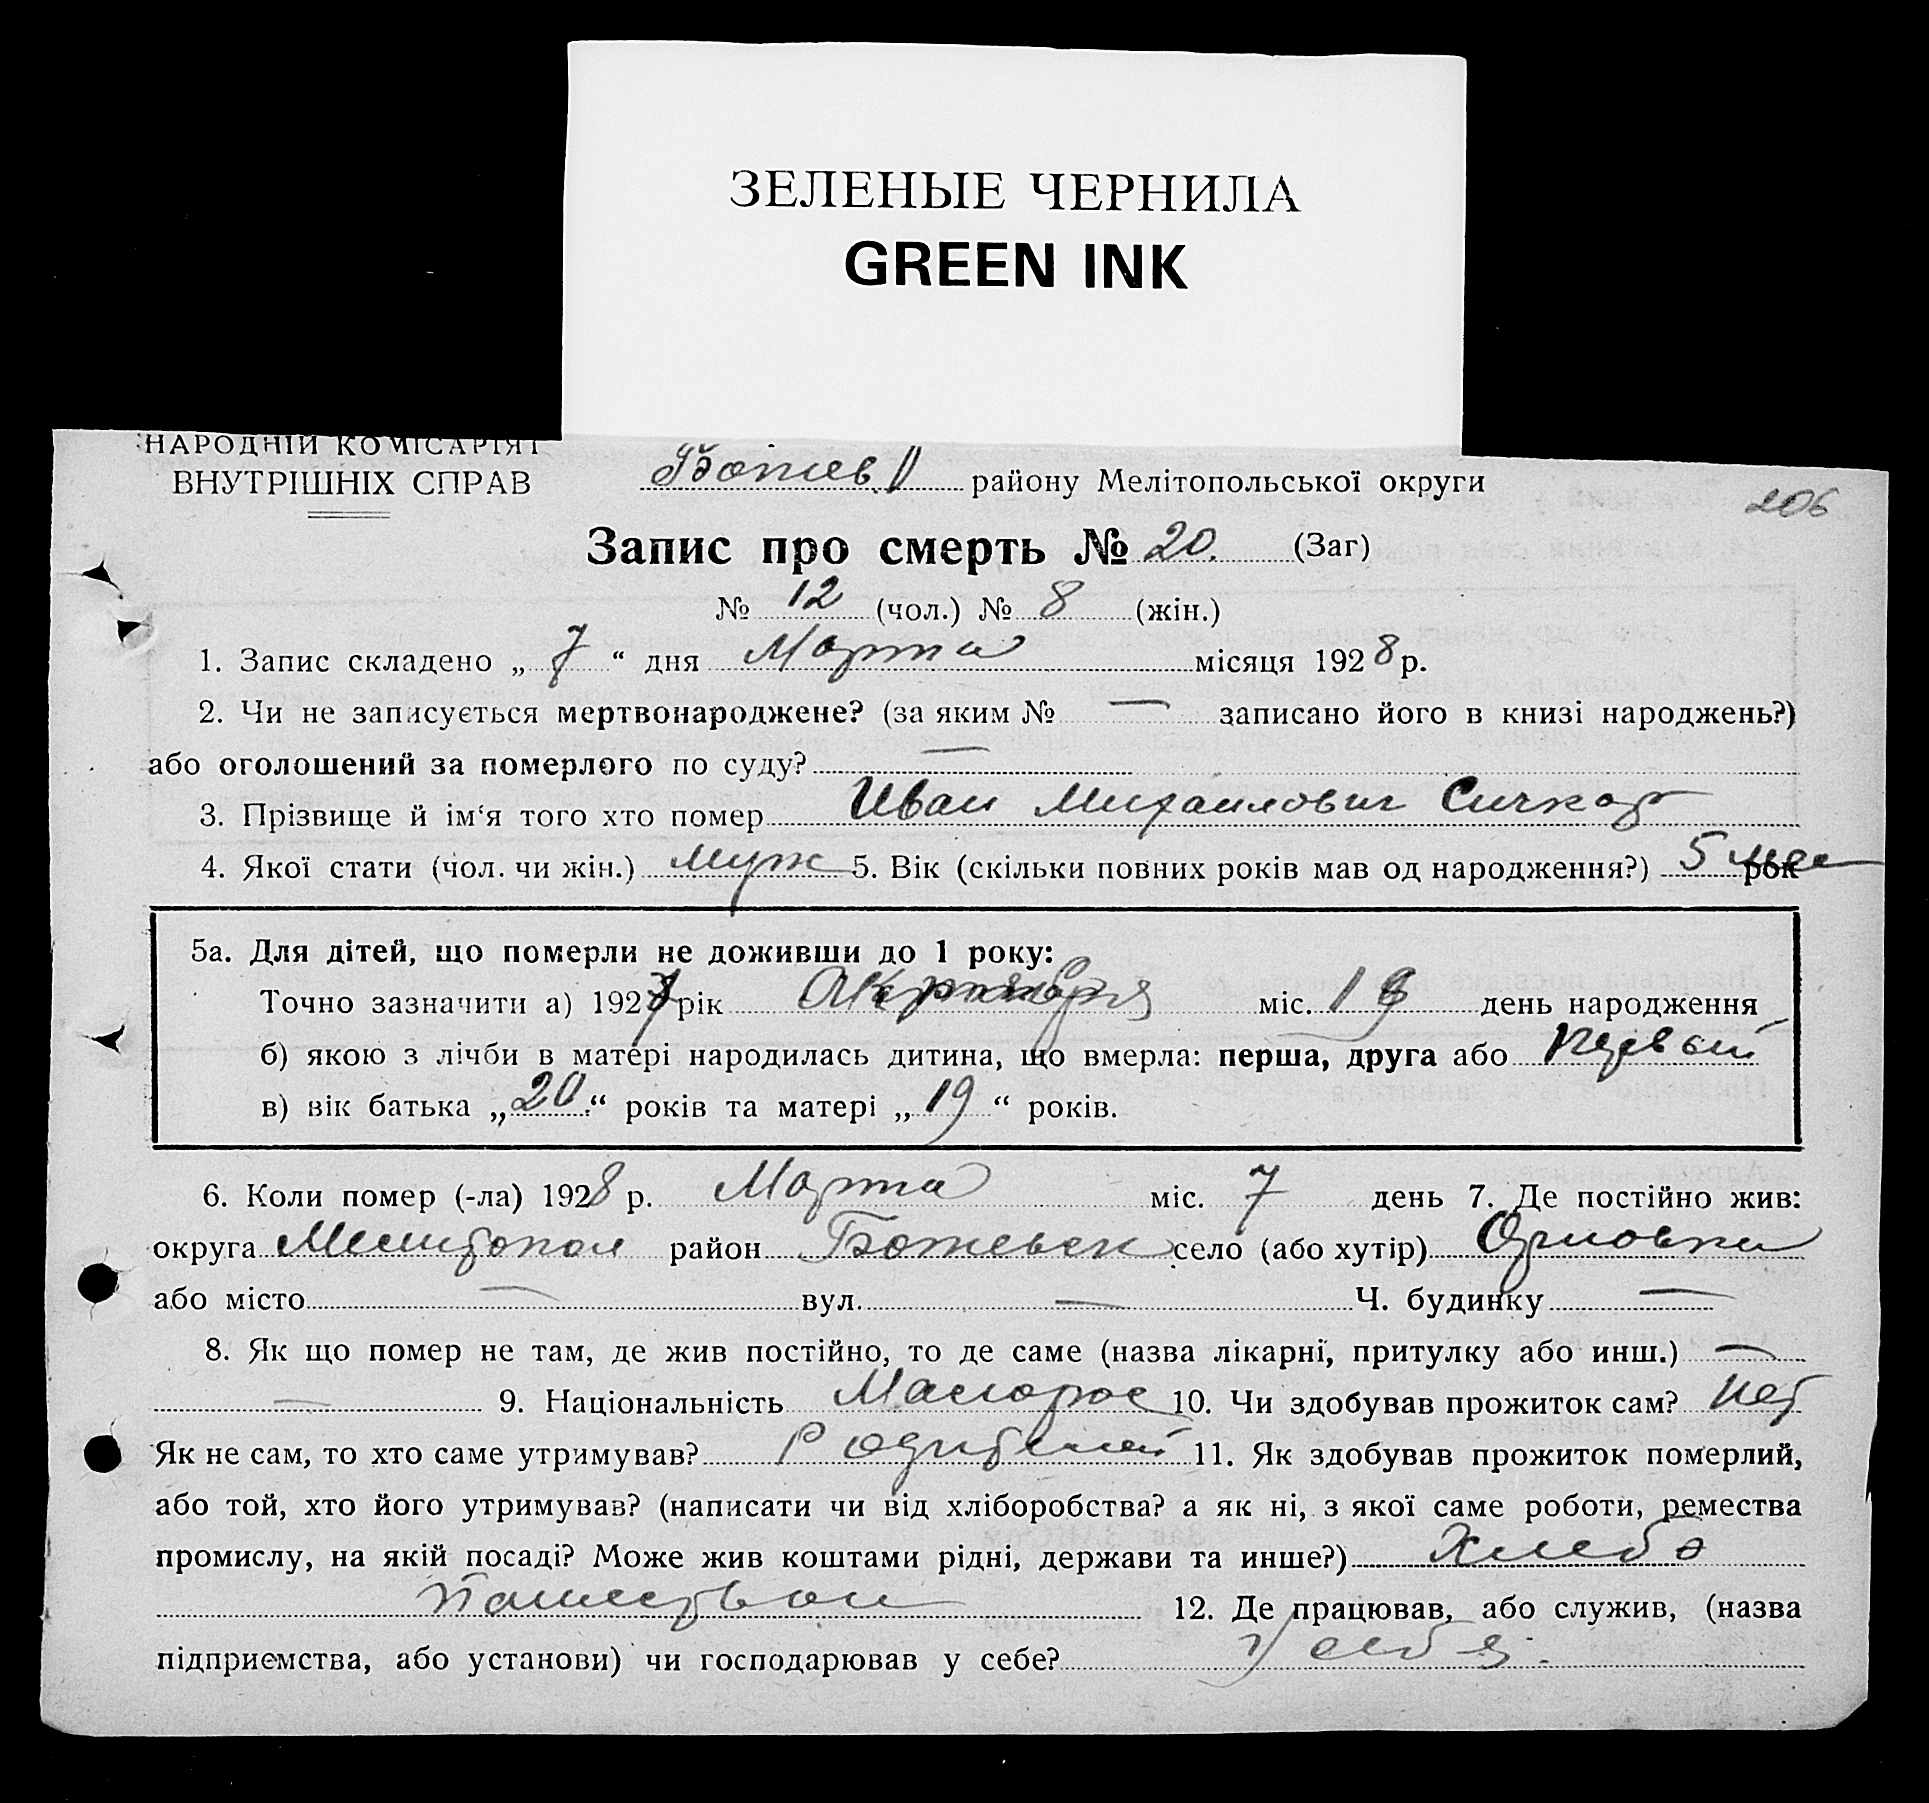 ЗЕЛЕНЫЕ ЧЕРНИЛА
GREEN INK
НАРОДНІЙ КОМІСАРІЯТ
ВНУТРІШНІХ СПРАВ
району Мелітопольської округи
206
Запис про смерть № 20. (Заг)
№ 12 (чол.) № 8 (жін.)
1. Запис складено „ 7 “ дня Марта місяця 1928 р.
2. Чи не записується мертвонароджене? (за яким № — записано його в книзі народжень?)
або оголошений за померлого по суду? —
3. Прізвище й ім‘я того хто помер Иван Михаилович Сичкар
4. Якої стати (чол. чи жін.) муж 5. Вік (скільки повних років мав од народження?) 5 мес рок
5а. Для дітей, що померли не доживши до 1 року:
Точно зазначити а) 1927 рік Октября міс. 19 день народження
б) якою з лічби в матері народилась дитина, що вмерла: перша, друга або первый
в) вік батька „ 20 “ років та матері „ 19 “ років.
6. Коли помер (-ла) 1928 р. Марта міс. 7 день 7. Де постійно жив:
округа Мелитопол район село (або хутір) Орловка
або місто — вул. — Ч. будинку —
8. Як що помер не там, де жив постійно, то де саме (назва лікарні, притулку або инш.) —
— 9. Національність Малорос 10. Чи здобував прожиток сам? Нет
Як не сам, то хто саме утримував? Родителей 11. Як здобував прожиток померлий,
або той, хто його утримував? (написати чи від хліборобства? а як ні, з якої саме роботи, ремества
промислу, на якій посаді? Може жив коштами рідні, держави та инше?) Хлебо
пашеством 12. Де працював, або служив, (назва
підприємства, або установи) чи господарював у себе? У себя.